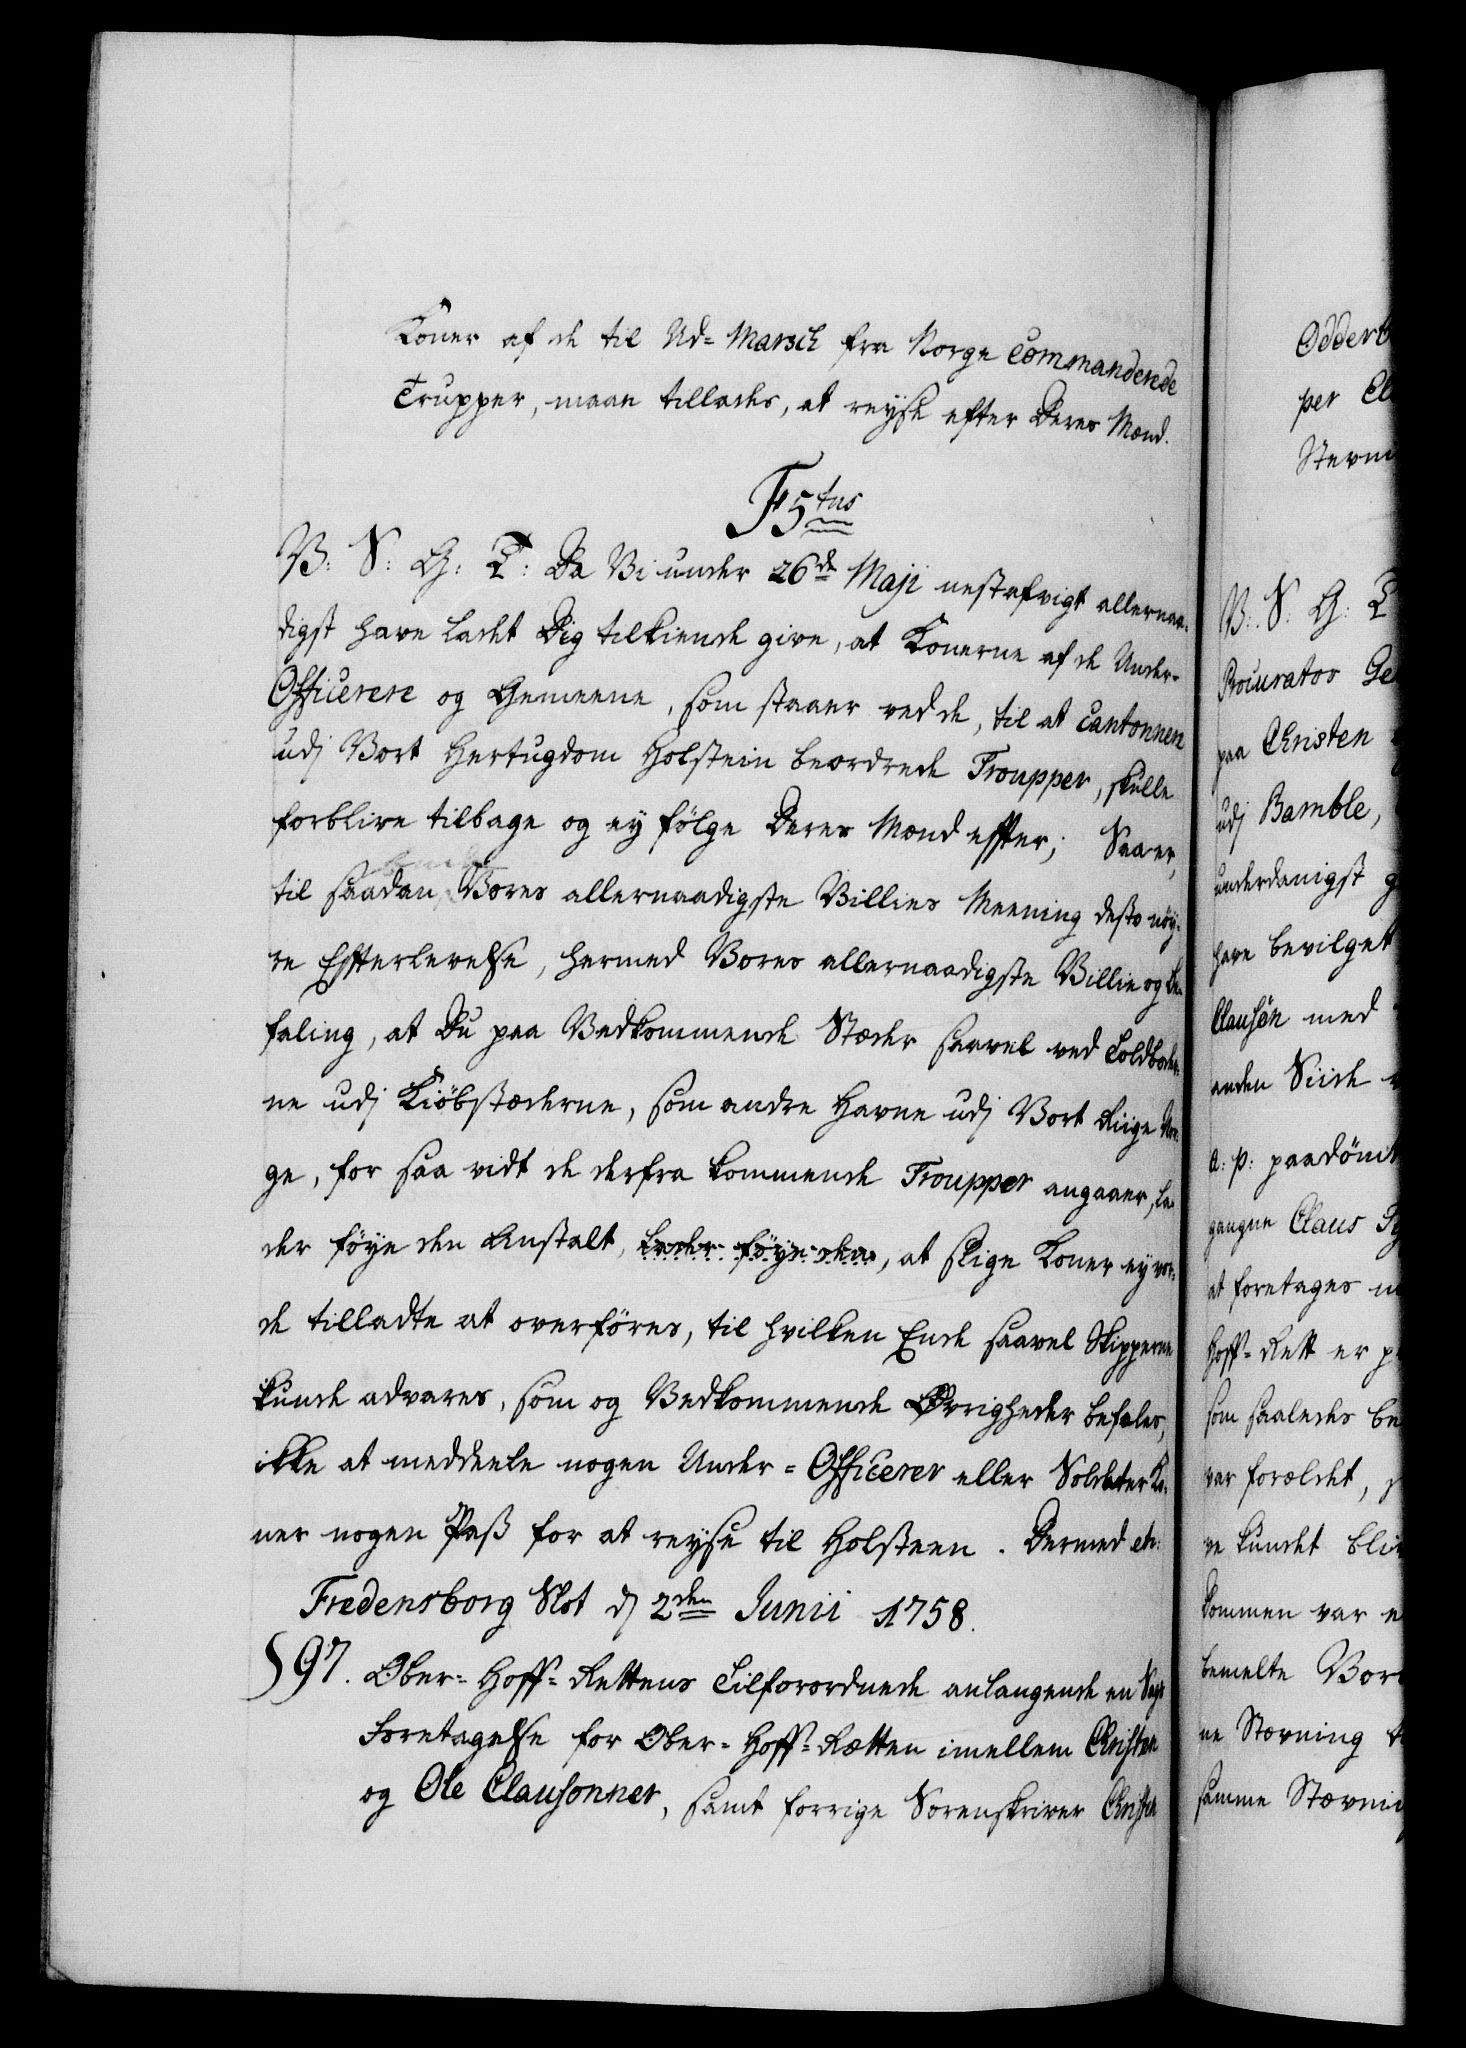 Koner af de til Ud-Marsch fra Norge Commanderede
Trupper, maae tillades, at reyse efter Deres Mænd.
F5tus
V: S: G: T: Da Vi under 26de Maji nestafvigt allernaa-
digst have ladet Dig tilkiende give, at Konerne af de Under-
Officerere og Gemeene, som staaer ved de, til at cantonnere
udj Vort Hertugdom Holstein beordrede Troupper, skulle
forblive tilbage og ey følge Deres Mænd effter; Saa er,
til saadan Vores allernaadigste Villies Meening desto nöy-
re Effterlevelse, hermed Vores allernaadigste Villie og Be-
faling, at Du paa Vedkommende Stæder saavel ved Toldboder-
ne udj Kiöbstæderne, som andre Havne udj Vort Riige Nor-
ge, for saa vidt de derfra kommende Troupper angaaer, la-
der föye den Anstalt, lader föye den, at slige Koner ey vor-
de tilladte at overföres, til hvilken Ende saavel Skipperne
kunde advares, som og Vedkommende Øvrigheder befales,
ikke at meddeele nogen Under-Officerer eller Soldater Ko-
ner nogen Pass for at reyse til Holsteen. Dermed etc:
Fredensborg Slot d 2den Junii 1758.
§97. Ober-Hoff-Rettens Tilforordnede anlangende en Sags
Foretagelse for Ober-Hoff-Rætten imellem Christen
og Ole Clausönner, samt forrige Sorenskriver Christen
Odderb
per Cl
Stevni
V: S: G: T
Procurator Ge
paa Christen
udj Bamble,
underdanigst g
have bevilget
Clausön med
anden Siide
a: p: paadömt
gangne Claus
at foretages
Hoff-Rett er p
som saaledes be
var forældet,
ve kundet bliv
kommen var e
bemelte Vor
ne Stævning t
samme Stævnin